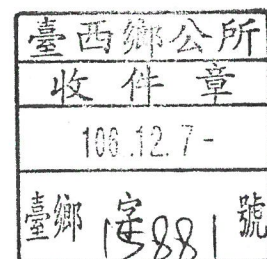 臺西鄉公所
收件章
106.12.7-
臺鄉 字 號